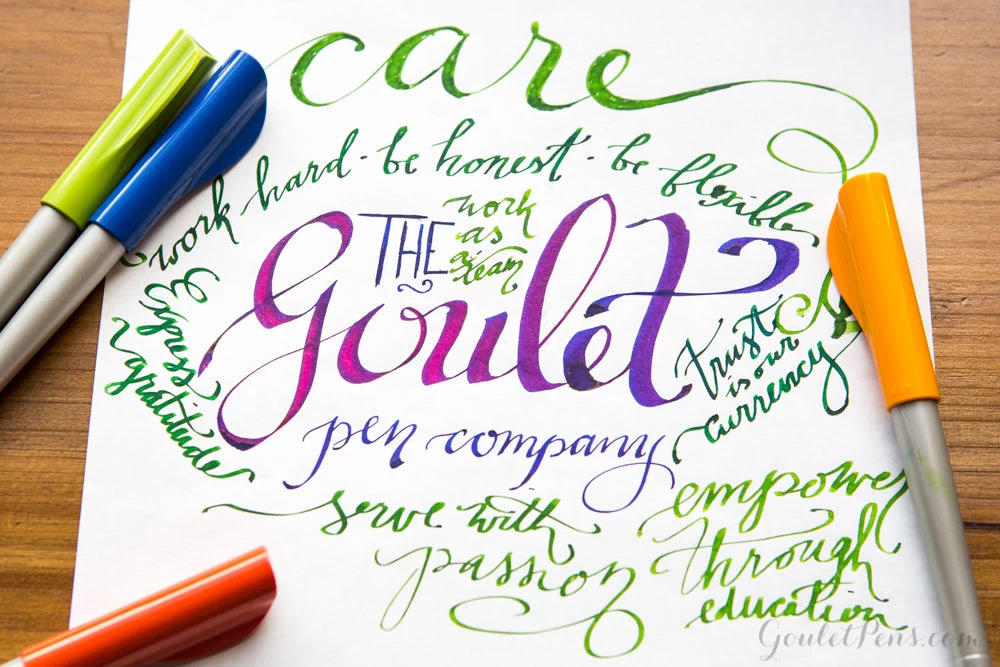 care
work hard · be honest · be flexible
THE
work
as
a
team
Goulet
Express
gratitude
trust
is our
currency
pen company
serve with
passion
empower
through
education
GouletPens.com